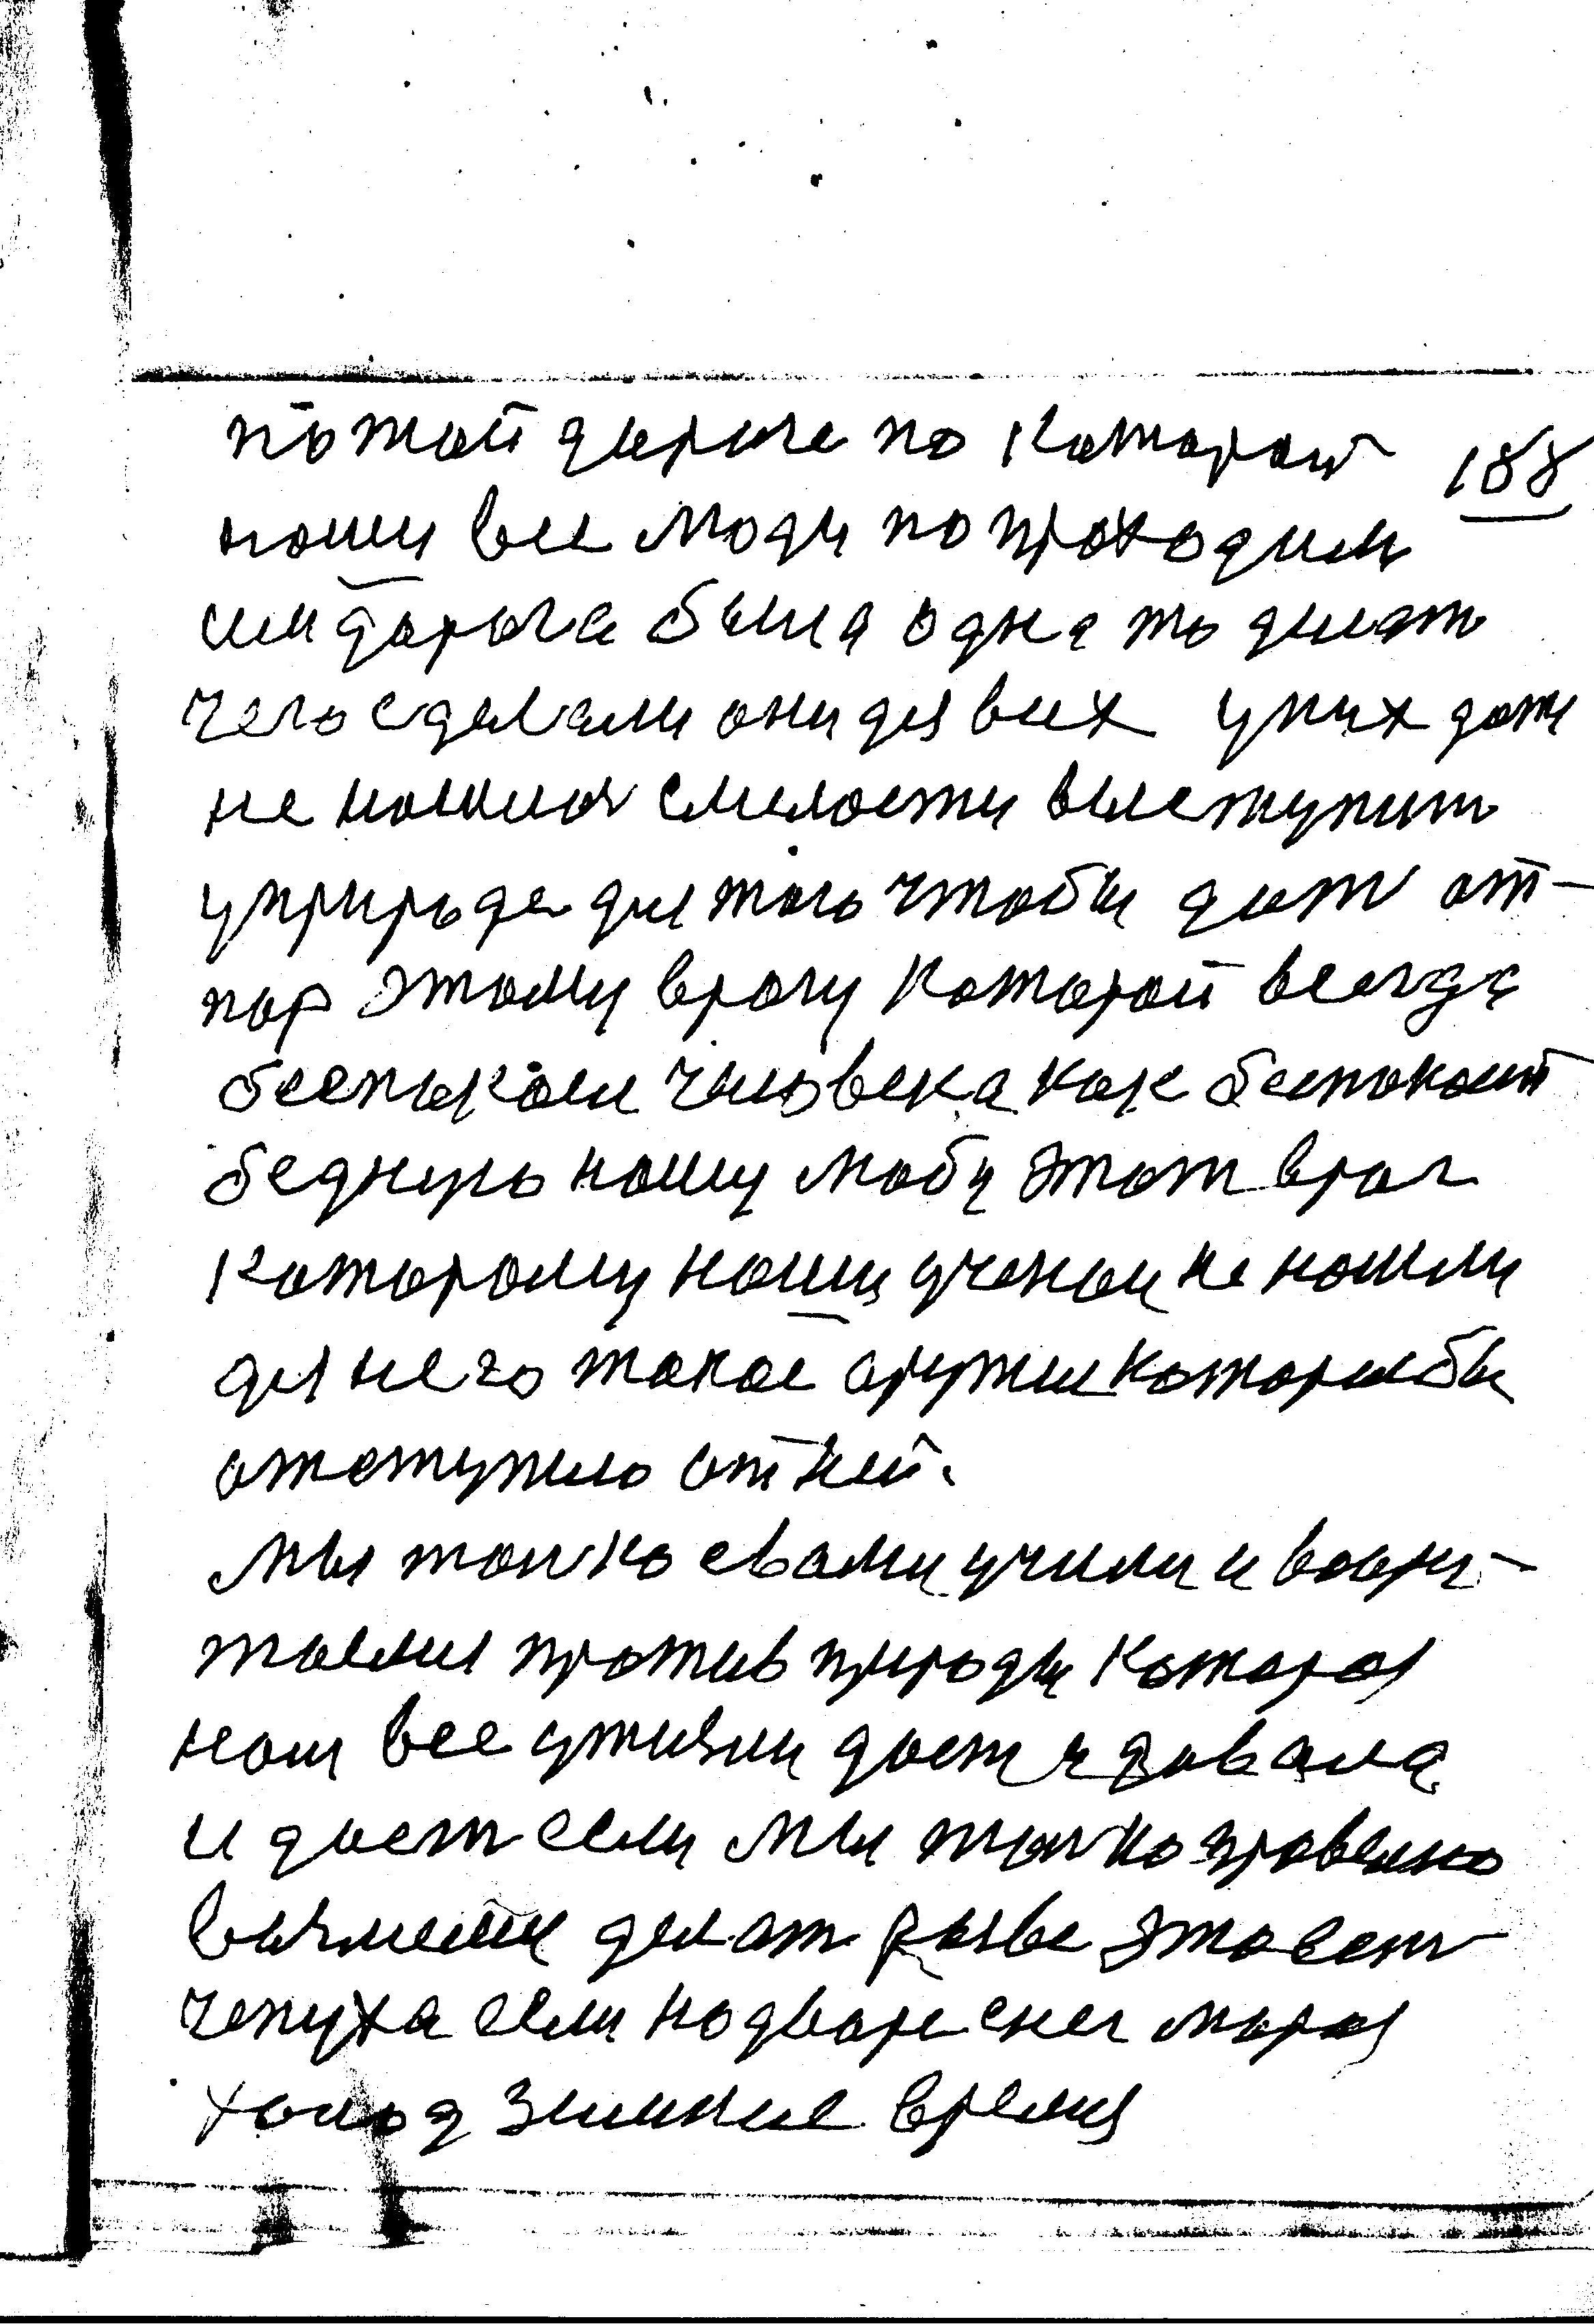 по той дароге по каторой 188
наши все люди попроходили
им дарога была одна то делат
чего сделали они для всех у них даже
не нашлось смелости выступит
у природе для того чтобы дат от-
пор этому врагу каторой всегда
беспокоил человека как беспокоит
бедную нашу Любу этот враг
каторому наши ученои не нашли
для него такое аружие каторые бы
отступило от ней.
Мы толко с вами учили и воспи-
тывали против природы каторая
нам все у жизни дает и давала
и дает если мы толко правелно
делат разве это ест
чепуха если на дваре снег мароз
холод зимние время